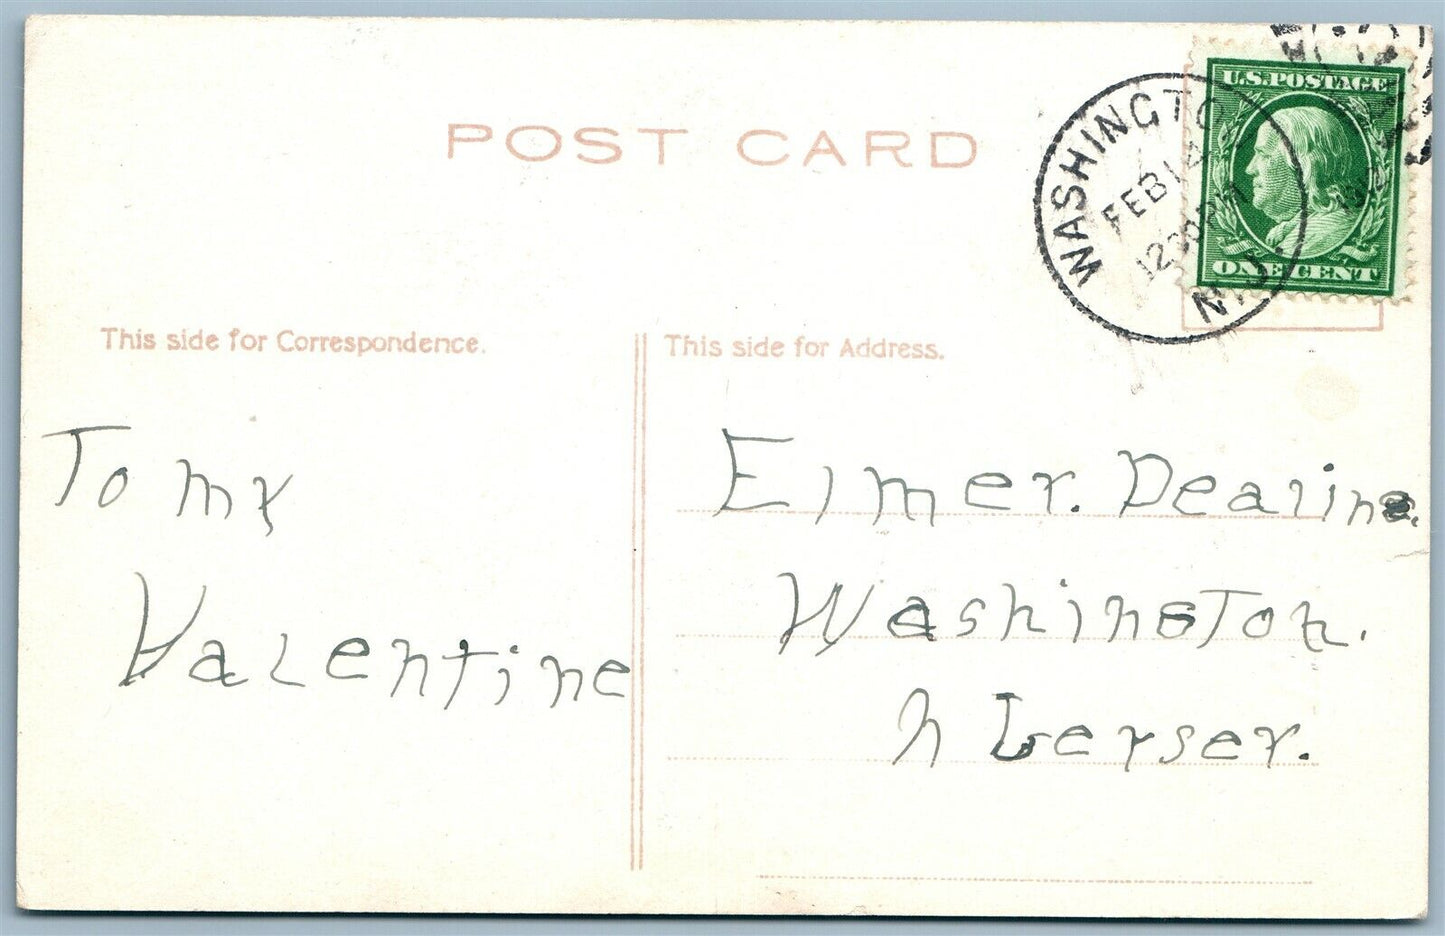 POST CARD
U.S. POSTAGE
ONE CENT
WASHINGTO
FEB 1
12 30 PM
N.J.
This side for Correspondence.
This side for Address.
To my
Valentine
Elmer. Dearine.
Washington.
n Jerser.